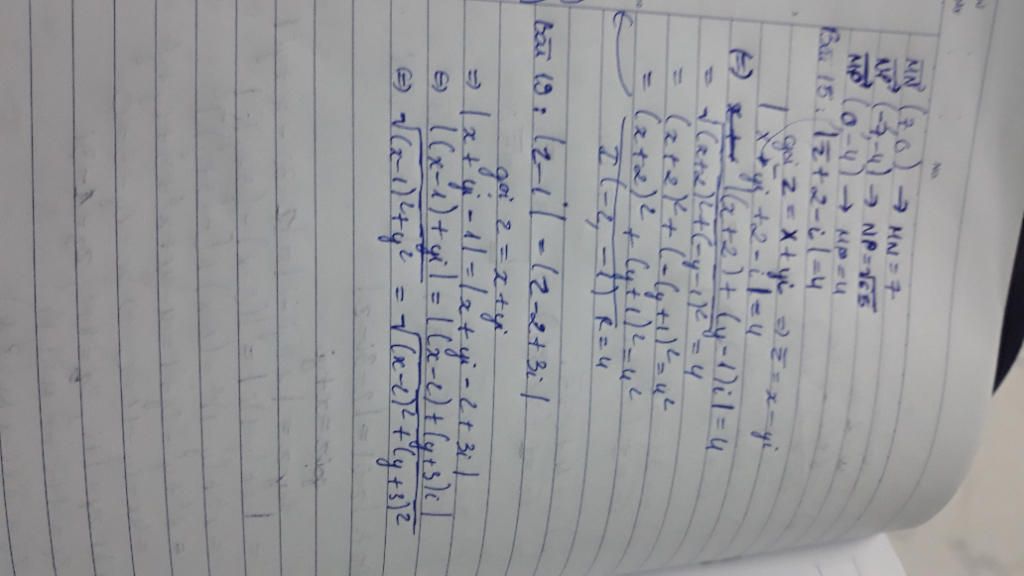 MN (7,0) → MN = 7
NP (-7,-4) → NP = √65
MP (0,-4) → MP = 4
Bài 15 : |z̄ + 2 - i| = 4
gọi z = x + yi ⇒ z̄ = x - yi
| x - yi + 2 - i | = 4
⇔ |(x+2) + (-y-1)i| = 4
= √(x+2)² + (-y-1)² = 4
= (x+2)² + (-(y+1))² = 4²
= (x+2)² + (y+1)² = 4²
I (-2, -1) R = 4
Bài 19 : |z-1| = |z-2+3i|
gọi z = x + yi
⇒ |x + yi - 1| = |x + yi - 2 + 3i|
⇔ |(x-1) + yi| = |(x-2) + (y+3)i|
⇔ √(x-1)² + y² = √(x-2)² + (y+3)²